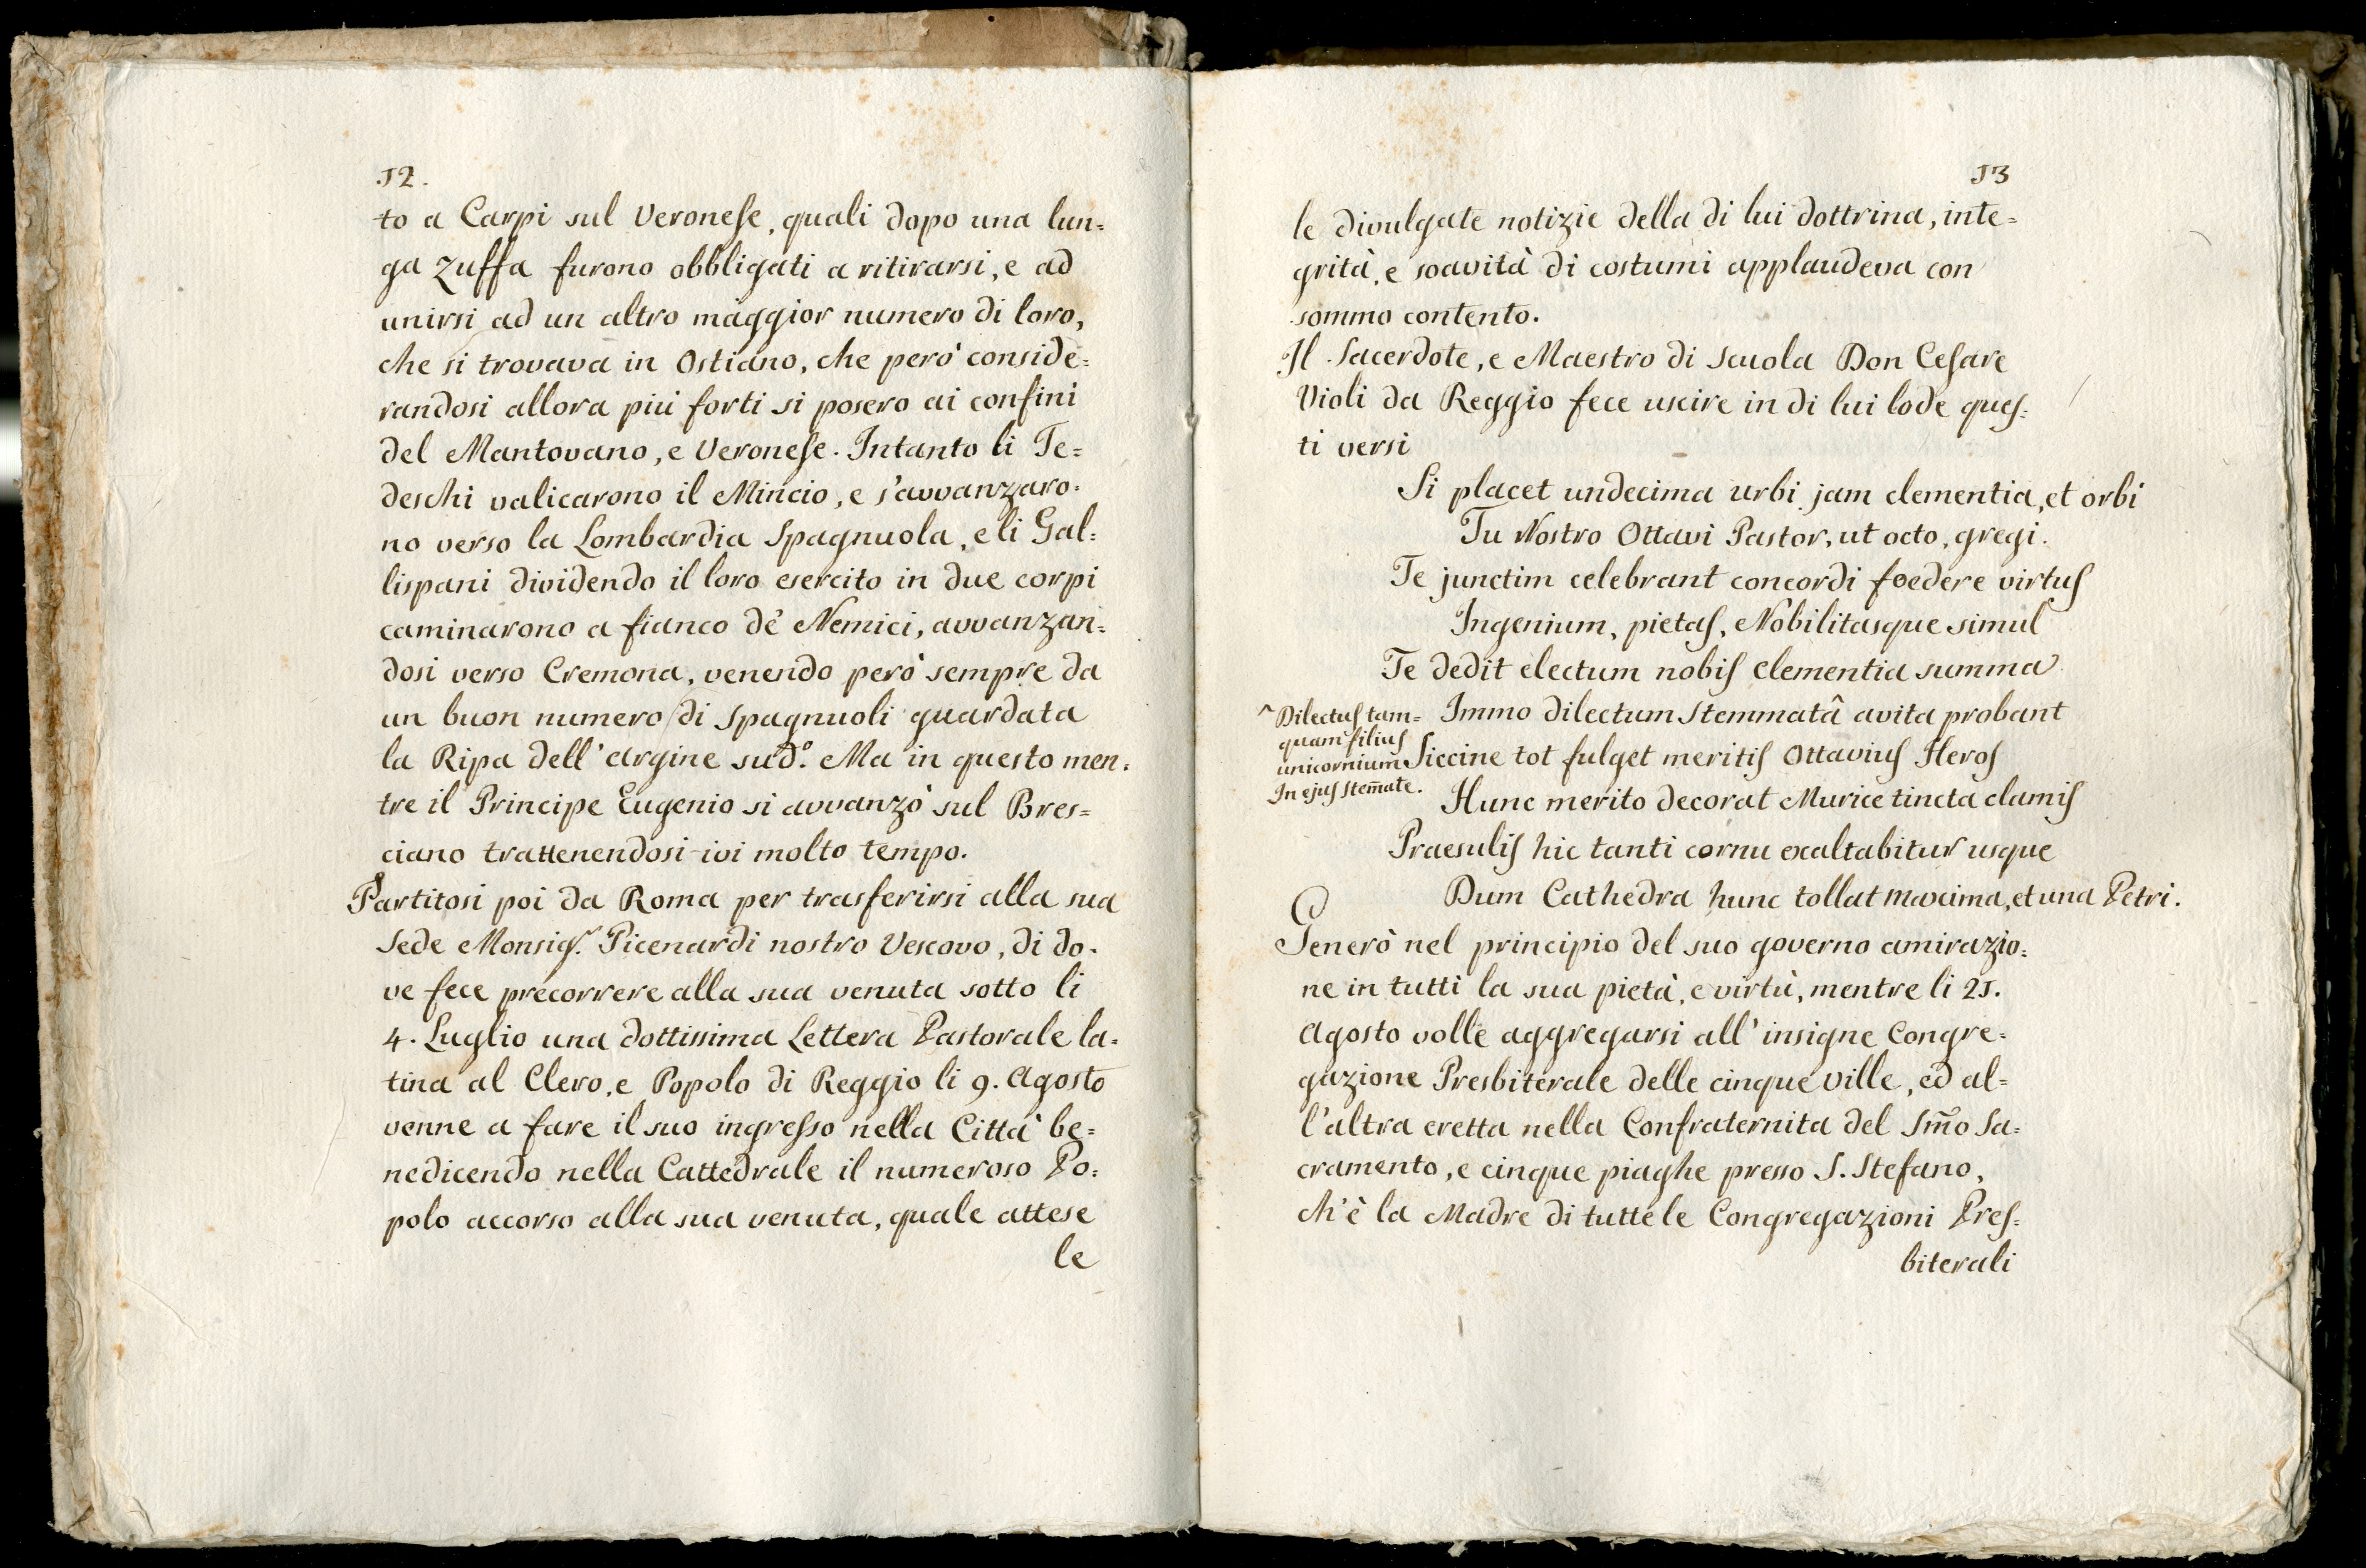 12.
to a Carpi sul Veronese, quali dopo una lun=
ga zuffa furono obbligati a ritirarsi, e ad
unirsi ad un altro maggior numero di loro,
che si trovava in Ostiano, che però conside=
randosi allora più forti si posero ai confini
del Mantovano, e Veronese. Intanto li Te=
deschi valicarono il Mincio, e s'avvanzaro=
no verso la Lombardia Spagnuola, e li Gal=
lispani dividendo il loro esercito in due corpi
caminarono a fianco de' Nemici, avvanzan=
dosi verso Cremona, venendo però sempre da
un buon numero di Spagnuoli guardata
la Ripa dell'argine sud.º Ma in questo men=
tre il Principe Eugenio si avvanzò sul Bres=
ciano trattenendosi ivi molto tempo.
Partitosi poi da Roma per trasferirsi alla sua
Sede Monsig.r Picenardi nostro Vescovo, di do=
ve fece precorrere alla sua venuta sotto li
4. Luglio una dottissima Lettera Pastorale la=
tina al Clero, e Popolo di Reggio li 9. Agosto
venne a fare il suo ingresso nella Città be=
nedicendo nella Cattedrale il numeroso Po=
polo accorso alla sua venuta, quale attese
le
13
le divulgate notizie della di lui dottrina, inte=
grità, e soavità di costumi applaudeva con
sommo contento.
Il Sacerdote, e Maestro di Scuola Don Cesare
Violi da Reggio fece uscire in di lui lode ques=
ti versi
Si placet undecima urbi jam clementia, et orbi
Tu Nostro Ottavi Pastor, ut octo, gregi.
Te junctim celebrant concordi foedere virtus
Ingenium, pietas, Nobilitasque simul
Te dedit electum nobis clementia summa
^ Dilectus tam=
quam filius
unicornium
In ejus stem̄ate.
Immo dilectum Stemmatâ avita probant
Siccine tot fulget meritis Ottavius Heros
Hunc merito decorat Murice tincta clamis
Praesulis hic tanti cornu exaltabitur usque
Dum Cathedra hunc tollat maxima, et una Petri.
Generò nel principio del suo governo amirazio=
ne in tutti la sua pietà, e virtù, mentre li 21.
Agosto volle aggregarsi all'insigne Congre=
gazione Presbiterale delle cinque ville, ed al=
l'altra eretta nella Confraternita del Sm̄o Sa=
cramento, e cinque piaghe presso S. Stefano,
ch'è la Madre di tutte le Congregazioni Pres=
biterali